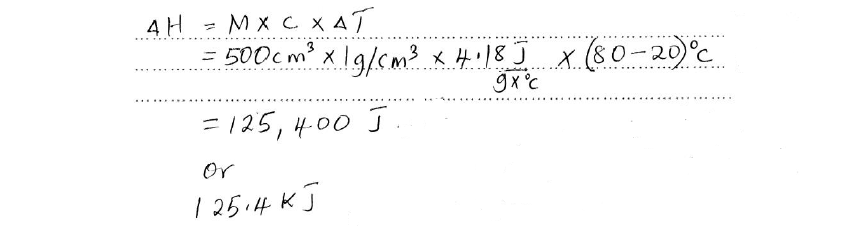 ΔH = M x C x ΔT
= 500cm³ x 1g/cm³ x 4.18 J/g x °C x (80-20)°C
= 125,400 J.
or
125.4 KJ